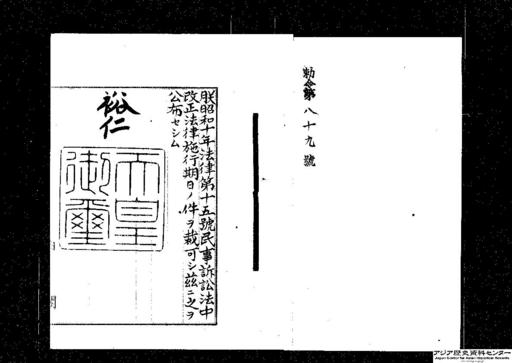 勅令第八十九號
朕昭和十年法律第十五號民事訴訟法中
改正法律施行期日ノ件ヲ裁可シ茲ニ之ヲ
公布セシム
裕仁
天皇
御璽
アジア歴史資料センター
Japan Center for Asian Historical Records